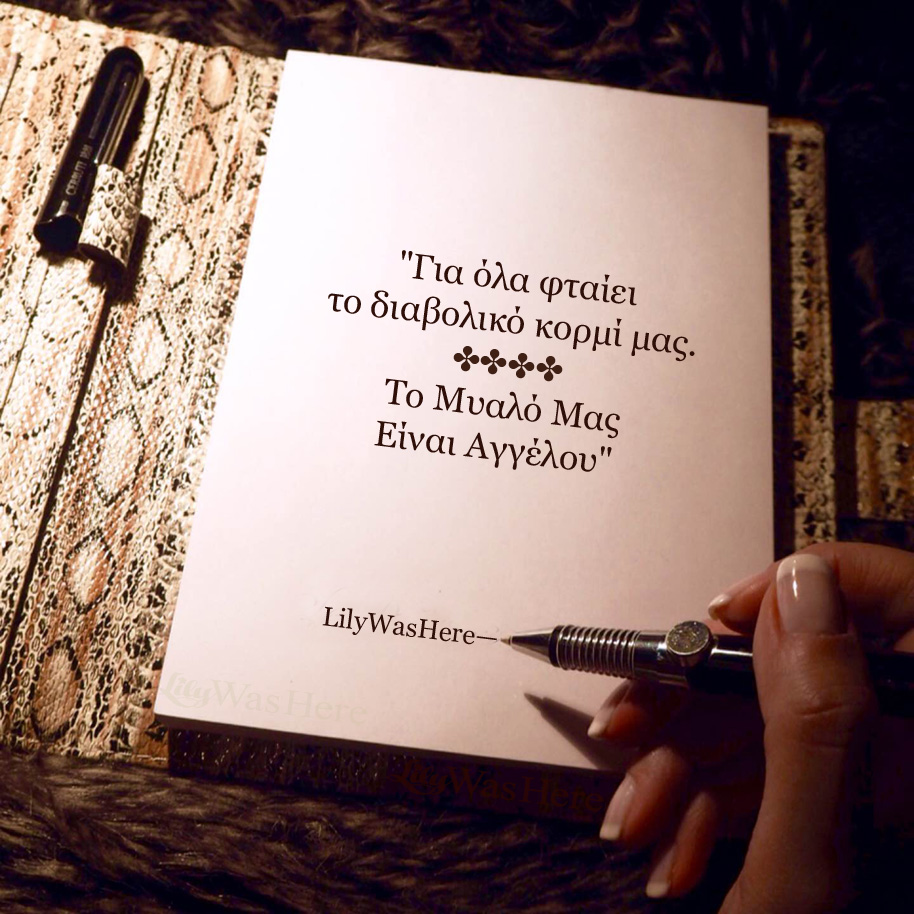 "Για όλα φταίει
το διαβολικό κορμί μας.
✤✤✤✤
Το Μυαλό Μας
Είναι Αγγέλου"
LilyWasHere—
LilyWasHere
LilyWasHere